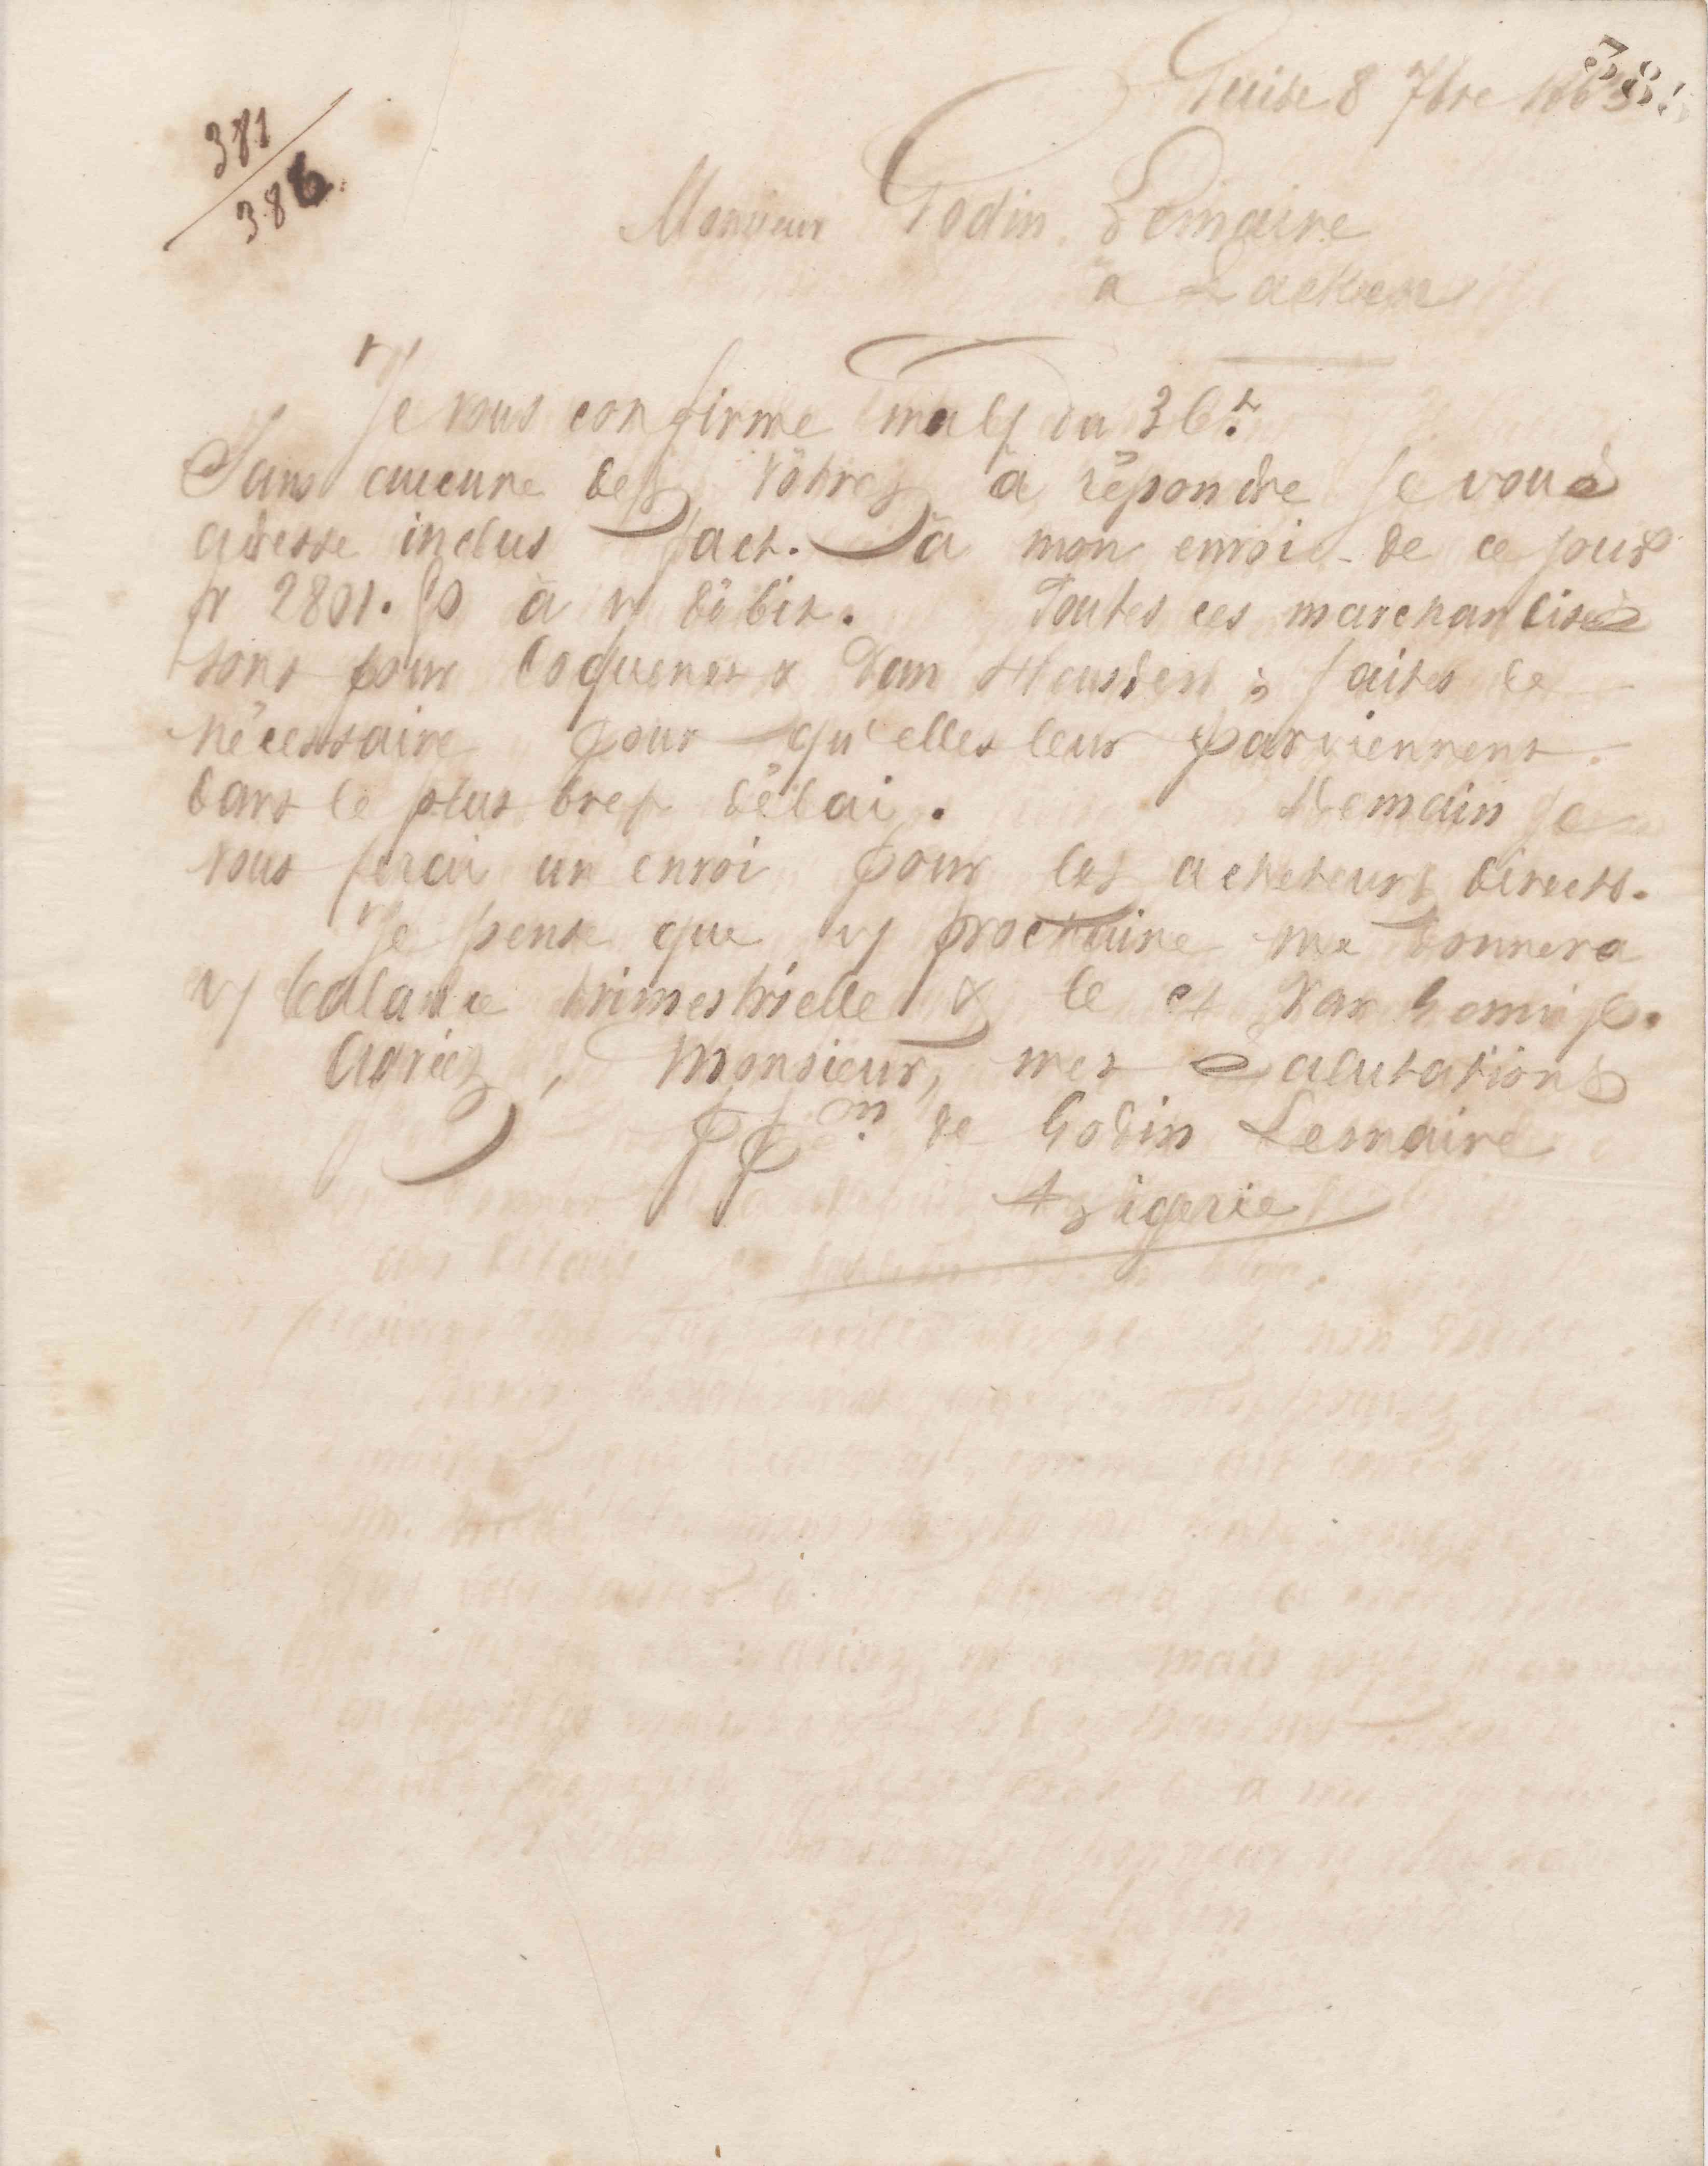 Guise 8 7bre 1865
385
381
386
Monsieur Godin Lemaire
à Laeken
Je vous confirme ma l/ du 3 Ct.
Sans aucune des vôtres à répondre je vous
adresse inclus fact. à mon envoi de ce jour
fr 2801.50 à v/ débit. Toutes ces marchandises
sont pour Coquenet & Van Heusden ; faites le
nécessaire pour qu'elles leur parviennent
dans le plus bref délai. Demain je
vous ferai un envoi pour les acheteurs directs.
Je pense que v/ prochaine me donnera
v/ balance trimestrielle & le ct Van
Agriez, Monsieur, mes salutations
pp on de Godin Lemaire